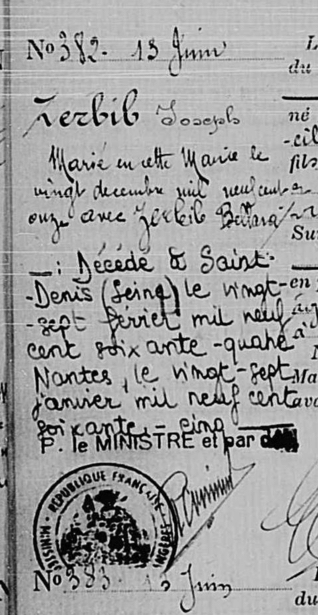 N° 382. 13 Juin
Zerbib Joseph
Marié en cette Mairie le
vingt decembre mil neuf cent
onze avec Zerbib
—: Décédé à Saint-
-Denis (Seine) le vingt-
-sept février mil neuf
cent soixante-quatre
Nantes, le vingt-sept
janvier mil neuf cent
soixante-cinq
P. le MINISTRE et par
RÉPUBLIQUE FRANÇAISE
N° 383 13 Juin
L
du
né
-cil
fils
Su
en
à
N
Ma
ava
du